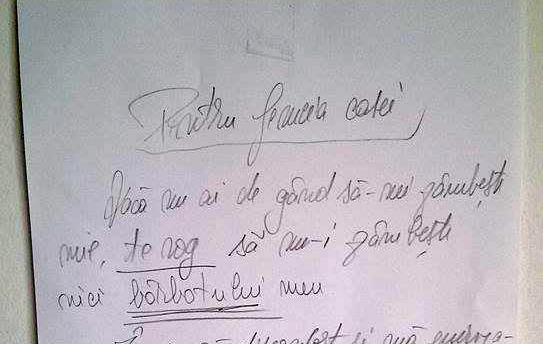 Pentru femeia casei,
Dacă nu ai de gând să-mi zâmbești
mie, te rog să nu-i zâmbești
nici bărbatului meu